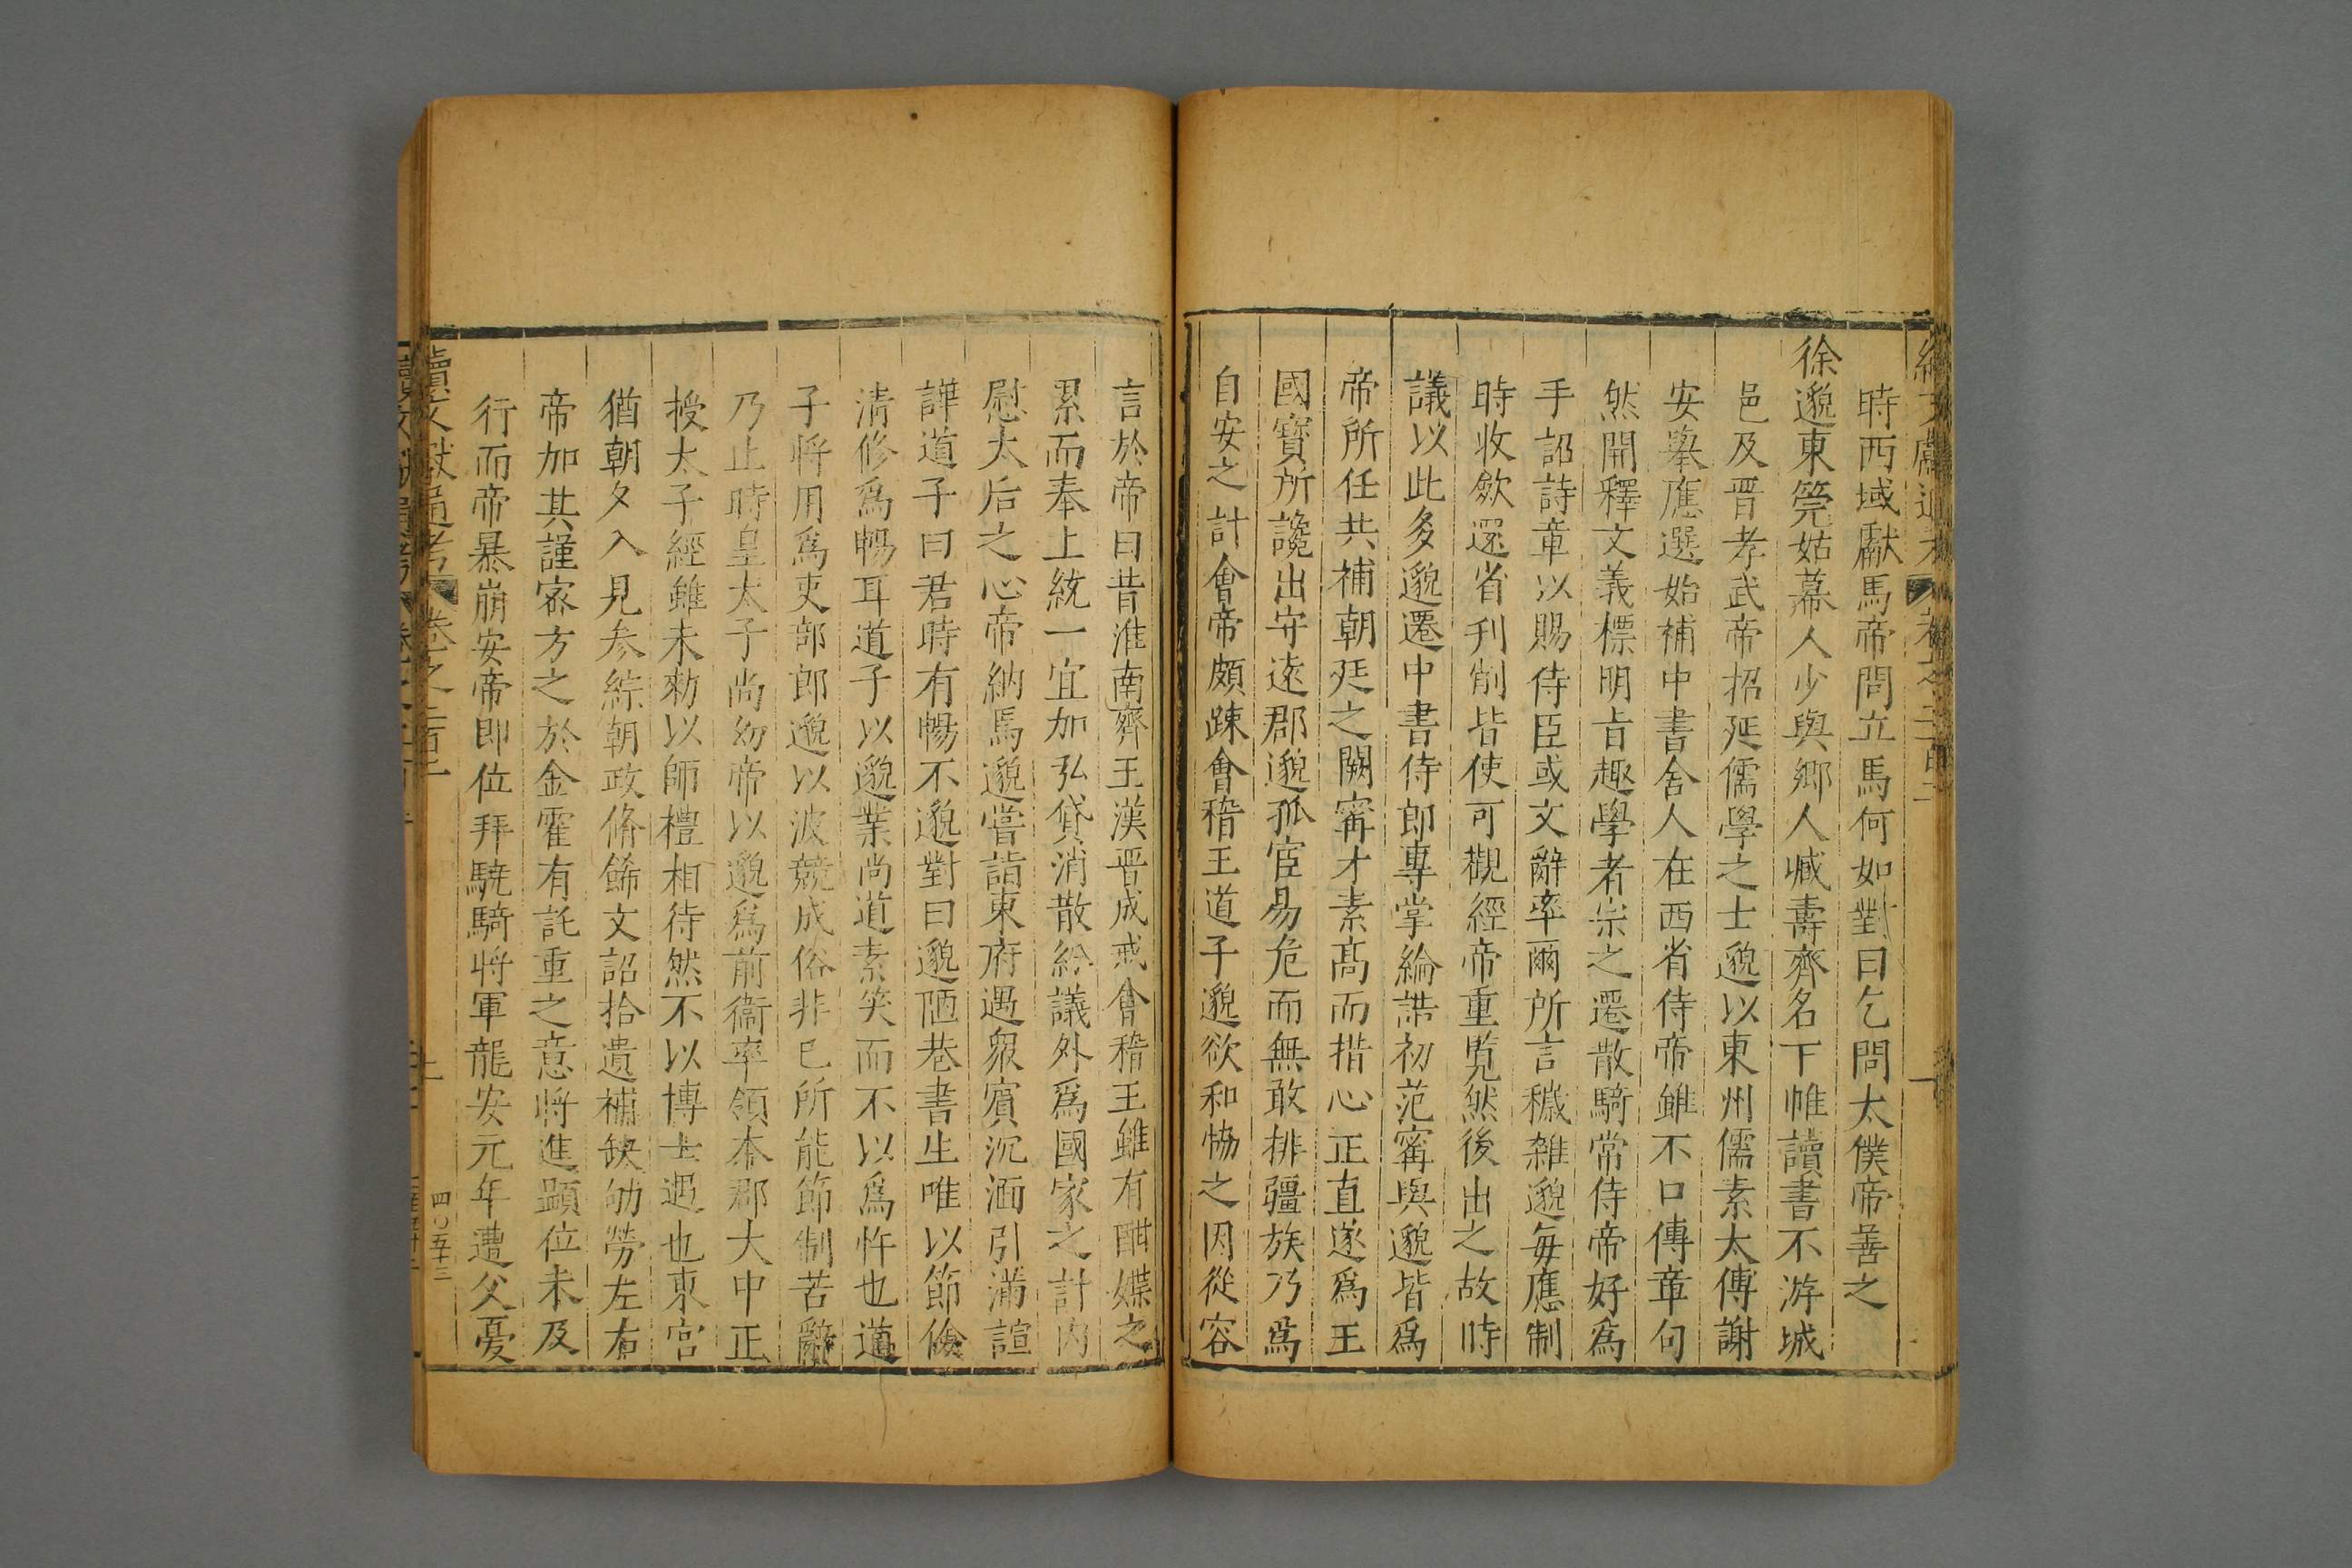 時西域獻馬帝問立馬何如對曰乞問太僕帝善之
徐邈東筦姑幕人少與鄉人臧壽齊名下帷讀書不游城
邑及晋孝武帝招延儒學之士邈以東州儒素太傅謝
安舉應選始補中書舍人在西省侍帝雖不口傳章句
然開釋文義標明旨趣學者宗之遷散騎常侍帝好爲
手詔詩章以賜侍臣或文辭率爾所言穢雜邈每應制
時收歛還省刋削皆使可觀經帝重覧然後出之故時
議以此多邈遷中書侍郎專掌綸誥初范寗與邈皆爲
帝所任共補朝廷之闕寗才素髙而措心正直遂爲王
國寶所讒出守逺郡邈孤宦易危而無敢排疆族乃爲
自安之計會帝頗踈會稽王道子邈欲和恊之因從容
言於帝曰昔淮南齊王漢晋成戒會稽王雖有酣媟之
累而奉上統一宜加弘貸消散紛議外爲國家之計内
慰太后之心帝納焉邈嘗詣東府遇衆賔沉湎引滿諠
譁道子曰君時有暢不邈對曰邈陋巷書生唯以節儉
清修爲暢耳道子以邈業尚道素笑而不以爲忤也道
子將用爲吏部郎邈以波競成俗非已所能節制苦辭
乃止時皇太子尚幼帝以邈爲前衞率領本郡大中正
授太子經雖未勑以師禮相待然不以博士遇也東宫
猶朝夕入見参綜朝政脩飾文詔拾遺補缺劬勞左右
帝加其謹宻方之於金霍有託重之意將進顯位未及
行而帝暴崩安帝即位拜驍騎將軍龍安元年遭父憂
續文獻通考
卷之二百二
四〇五十三